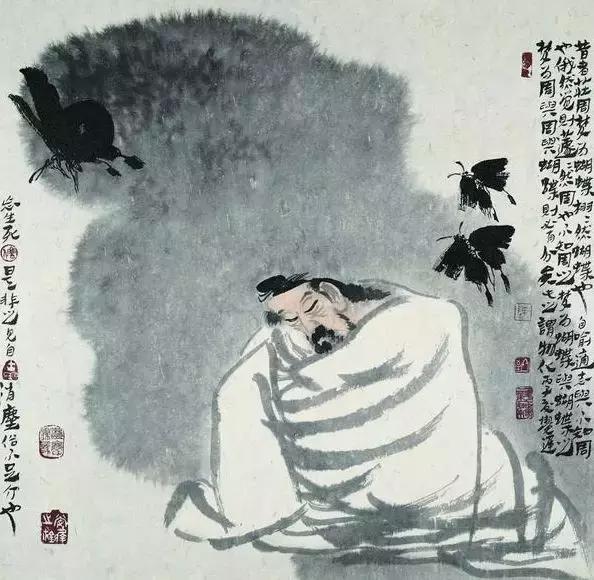 昔者莊周梦为蝴蝶栩〻然蝴蝶也自喻適志與不知周
也俄然觉则蘧〻然周也不知周之梦为蝴蝶與蝴蝶之
梦为周與周與蝴蝶则必有分矣此之謂物化
忘生死是非之见自消塵俗不足介也